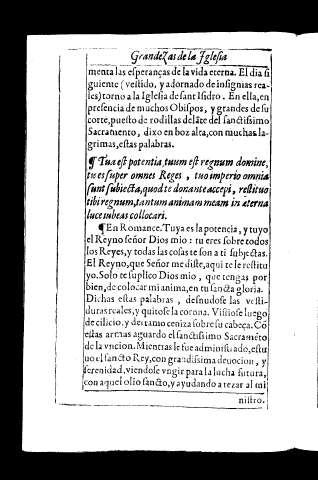 Grandezas de la Iglesia
menta las esperanças de la vida eterna. El dia si
guiente (vestido, y adornado de insignias rea-
les) torno a la Iglesia de sant Isidro. En ella, en
presencia de muchos Obispos, y grandes de su
corte, puesto de rodillas delāte del sanctissimo
Sacramento, dixo en boz alta, con muchas la-
grimas, estas palabras.
¶ Tua est potentia, tuum est regnum domine,
tu es super omnes Reges, tuo imperio omnia
sunt subiecta, quod te donante accepi, restituo
tibi regnum, tantum animam meam in æterna
luce iubeas collocari.
¶ En Romance. Tuya es la potencia, y tuyo
el Reyno señor Dios mio: tu eres sobre todos
los Reyes, y todas las cosas te son a ti subjectas.
El Reyno, que Señor me diste, aqui te le restitu
yo. Solo te suplico Dios mio, que tengas por
bien, de colocar mi anima, en tu sancta gloria.
Dichas estas palabras, desnudose las vesti-
duras reales, y quitose la corona. Vistiose luego
de cilicio, y derramo ceniza sobre su cabeça. Cō
estas armas aguardo el sanctissimo Sacramēto
de la vncion. Mientras le fue administrado, estu
uo el sancto Rey, con grandissima deuocion, y
serenidad, viendose vngir para la lucha futura,
con aquel olio sancto, y ayudando a rezar al mi
nistro.